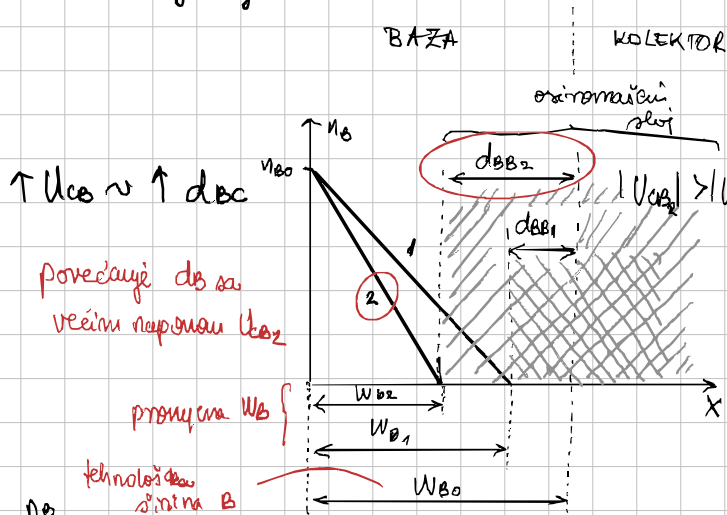 BAZA
KOLEKTOR
osiromašeni
sloj
n_B
n_B0
d_BB2
↑ U_CB ~ ↑ d_BC
|U_CB2| > |U
d_BB1
1
2
povećanje d_B sa
većim naponom U_CB2
W_B2
x
promjena W_B
W_B1
tehnološka
širina B
W_B0
n_B